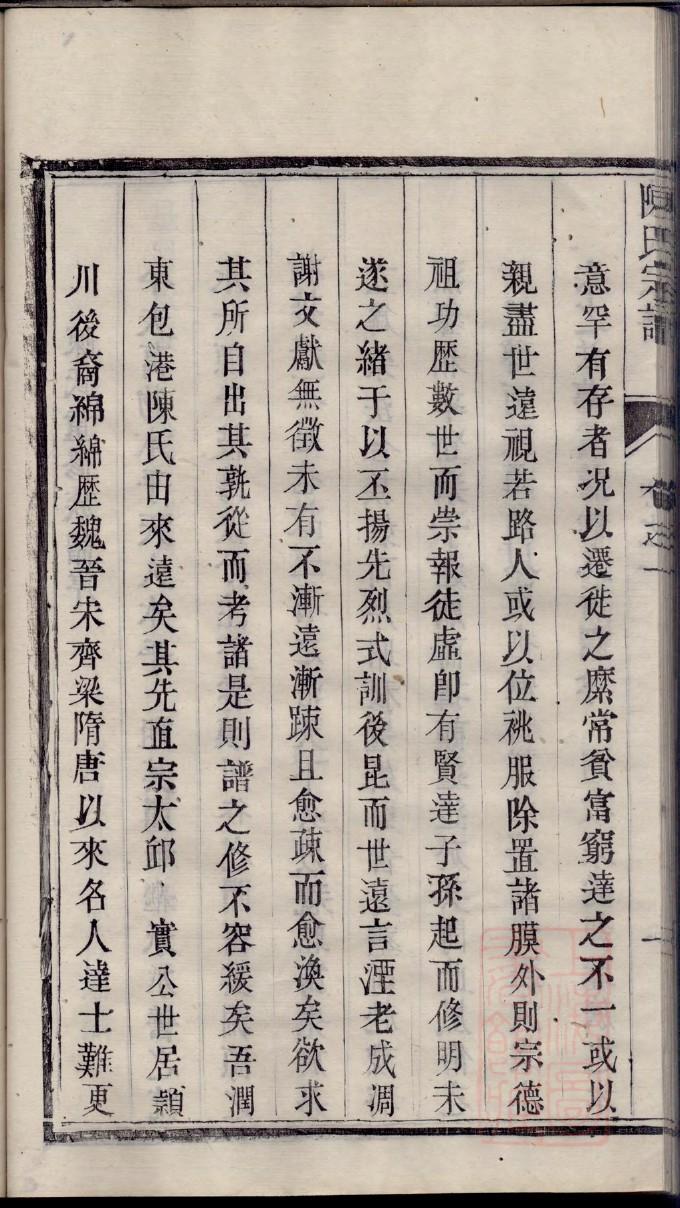 陳氏宗譜
卷之一
意罕有存者况以遷徙之縻常貧富窮達之不一或以
親盡世遠視若路人或以位祧服除置諸膜外則宗德
祖功歴數世而崇報徒虛卽有賢達子孫起而修明未
遂之緒于以丕揚先烈式訓後昆而世遠言湮老成凋
謝文獻無徵未有不漸遠漸踈且愈疎而愈渙矣欲求
其所自出其孰從而考諸是則譜之修不容緩矣吾潤
東包港陳氏由來遠矣其先直宗太邱寔公世居頴
川後裔綿綿歴魏晉宋齊梁隋唐以來名人達士難更